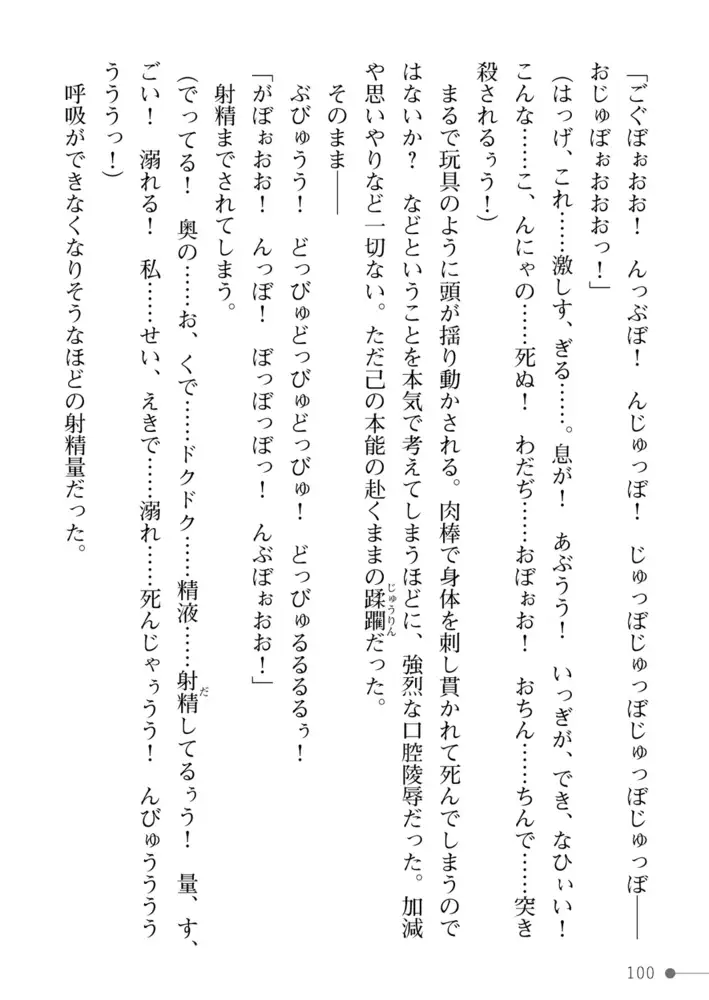 「ごぐぼぉおお！　んっぶぼ！　んじゅっぼ！　じゅっぼじゅっぼじゅっぼじゅっぼ――
おじゅぼぉおおおっ！」
（はっげ、これ……激しす、ぎる……。息が！　あぶうう！　いっぎが、でき、なひぃい！
こんな……こ、んにゃの……死ぬ！　わだぢ……おぼぉお！　おちん……ちんで……突き
殺されるぅう！）
まるで玩具のように頭が揺り動かされる。肉棒で身体を刺し貫かれて死んでしまうので
はないか？　などということを本気で考えてしまうほどに、強烈な口腔陵辱だった。加減
や思いやりなど一切ない。ただ己の本能の赴くままの蹂躙じゅうりんだった。
そのまま――
ぶびゅうう！　どっびゅどっびゅどっびゅ！　どっびゅるるるるぅ！
「がぼぉおお！　んっぼ！　ぼっぼっぼっ！　んぶぼぉおお！」
射精までされてしまう。
（でってる！　奥の……お、くで……ドクドク……精液……射精だしてるぅう！　量、す、
ごい！　溺れる！　私……せい、えきで……溺れ……死んじゃぅうう！　んびゅうううう
うううっ！）
呼吸ができなくなりそうなほどの射精量だった。
100